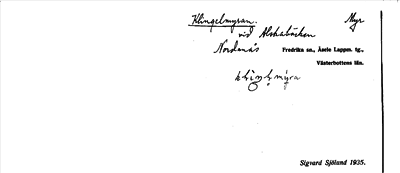 Klingelmyran. Myr
vid Alskabäcken
Nordanås Fredrika sn., Åsele Lappm. tg.,
Västerbottens län.
Sigvard Sjöland 1935.